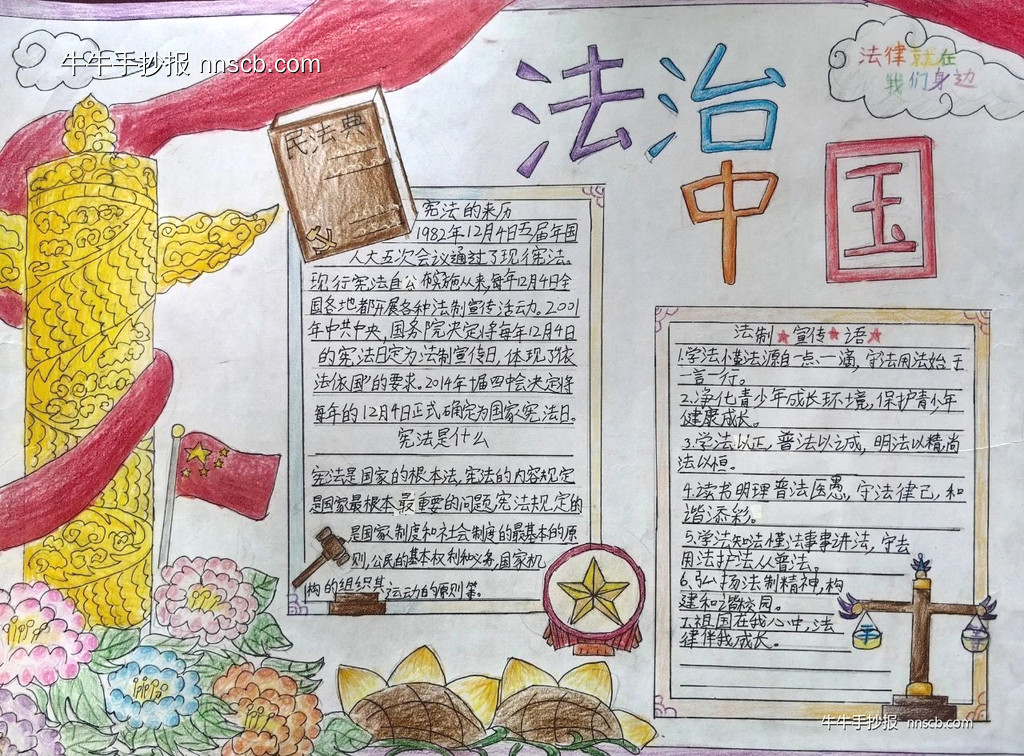 牛牛手抄报 nnscb.com
法治
中
国
法律就在
我们身边
民法典
宪法的来历
1982年12月4日五届年国
人大五次会议通过了现行宪法。
现行宪法自公布实施从来,每年12月4日全
国各地都开展各种法制宣传活动。2001
年中共中央,国务院决定将每年12月4日
的宪法日定为法制宣传日,体现了依
法依国"的要求。2014年十届四中会决定将
每年的12月4日正式确定为国家宪法日。
宪法是什么
宪法是国家的根本法,宪法的内容规定
是国家最根本最重要的问题,宪法规定的
是国家制度和社会制度的最基本的原
则,公民的基本权利和义务,国家机
构的组织其运动的原则等。
法制★宣传★语★
1.学法懂法源自一点一滴,守法用法始于
一言一行。
2.净化青少年成长环境,保护青少年
健康成长。
3.学法以正,普法以之成,明法以精,尚
法以恒。
4.读书明理普法医愚,守法律己,和
谐添彩。
5.学法知法懂法事事讲法,守去
用法护法从普法。
6.弘扬法制精神,构
建和谐校园。
7.祖国在我心中,法
律伴我成长。
牛牛手抄报 nnscb.com